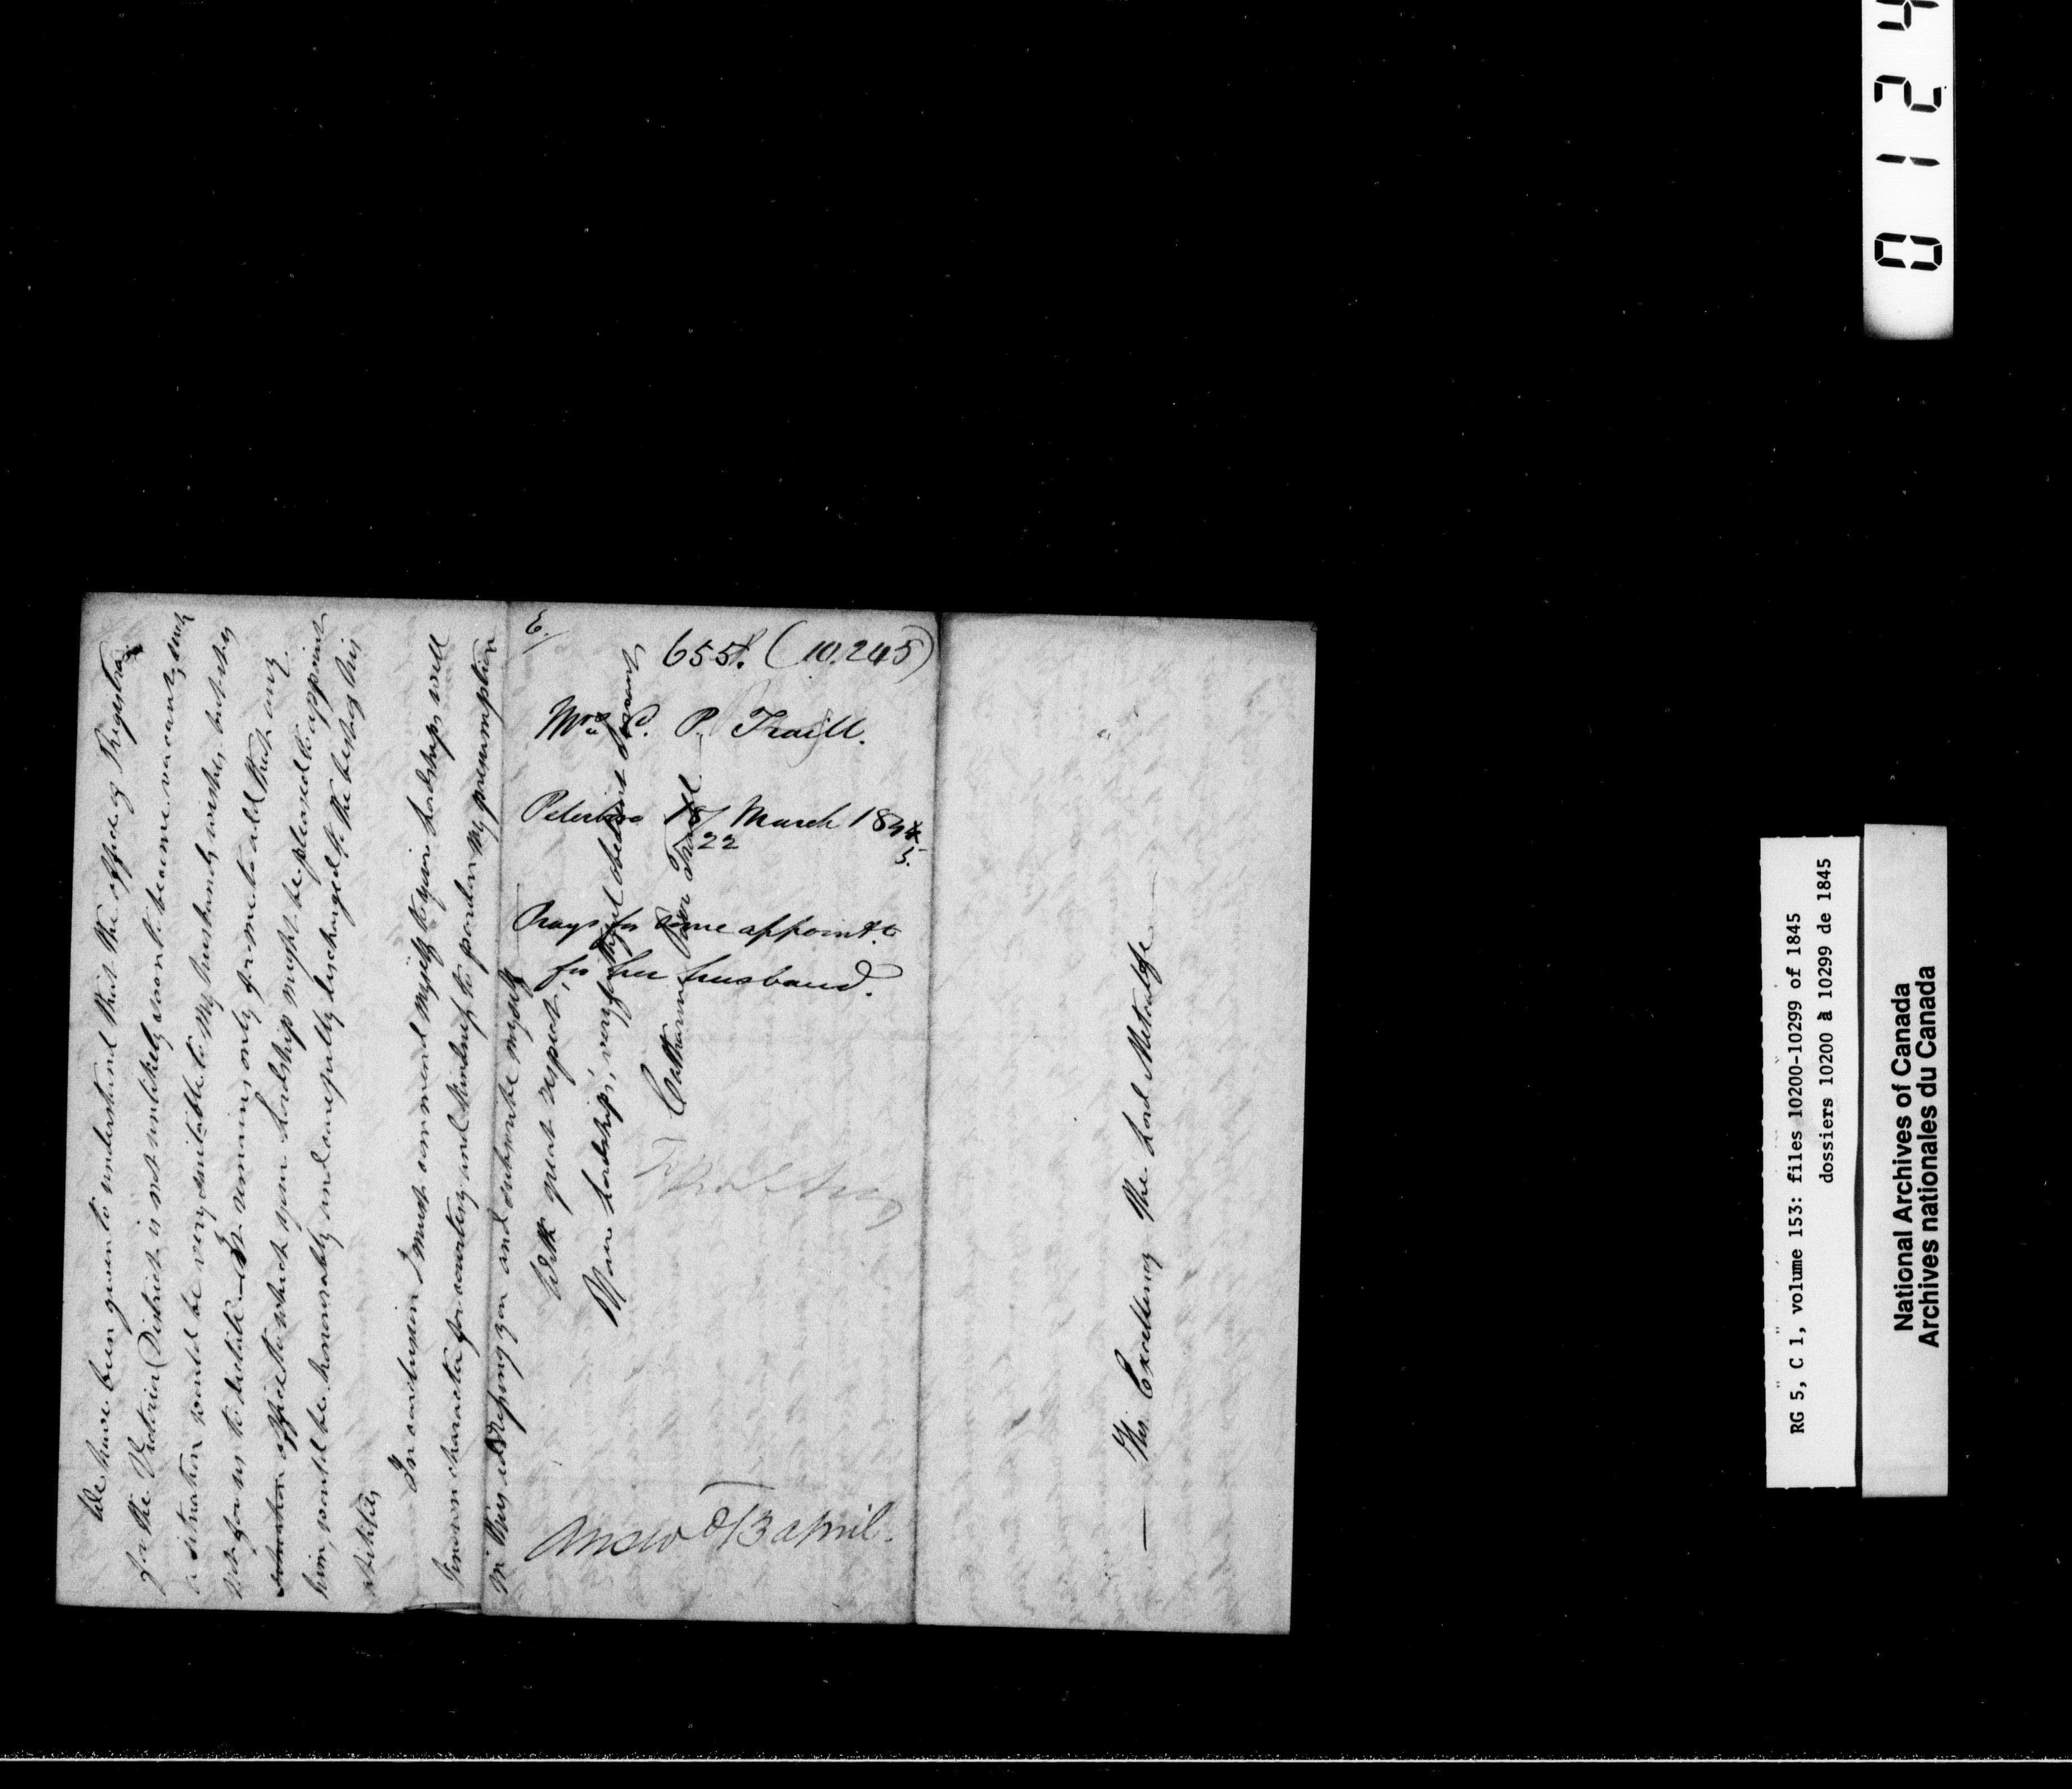 We have been given to understand that the office of Registrar
for the Victoria District is not unlikely soon to become vacant, such
a situation would be very suitable to my husband's wishes, but it is
not for us to dictate — It remains only for me to add that any
situation office to which your Lordship might be pleased to appoint
him, would be honorably and carefully discharged to the best of his
abilities
In conclusion I must commend myself to your Lordship's well
known character for courtesy and kindness to pardon my presumption
in thus addressing you and subscribe myself
With great respect,
Your Lordship's, very faithful obedient servant
Catharine Parr Traill
His Excellency the Lord Metcalfe
E.
655. (10.245)
Mrs C. P. Traill.
Peterboro 18/22 March 1845
Prays for some appointt.
for her husband.
Answd 13 April.
0124
RG 5, C 1, volume 153: files 10200-10299 of 1845
dossiers 10200 à 10299 de 1845
National Archives of Canada
Archives nationales du Canada